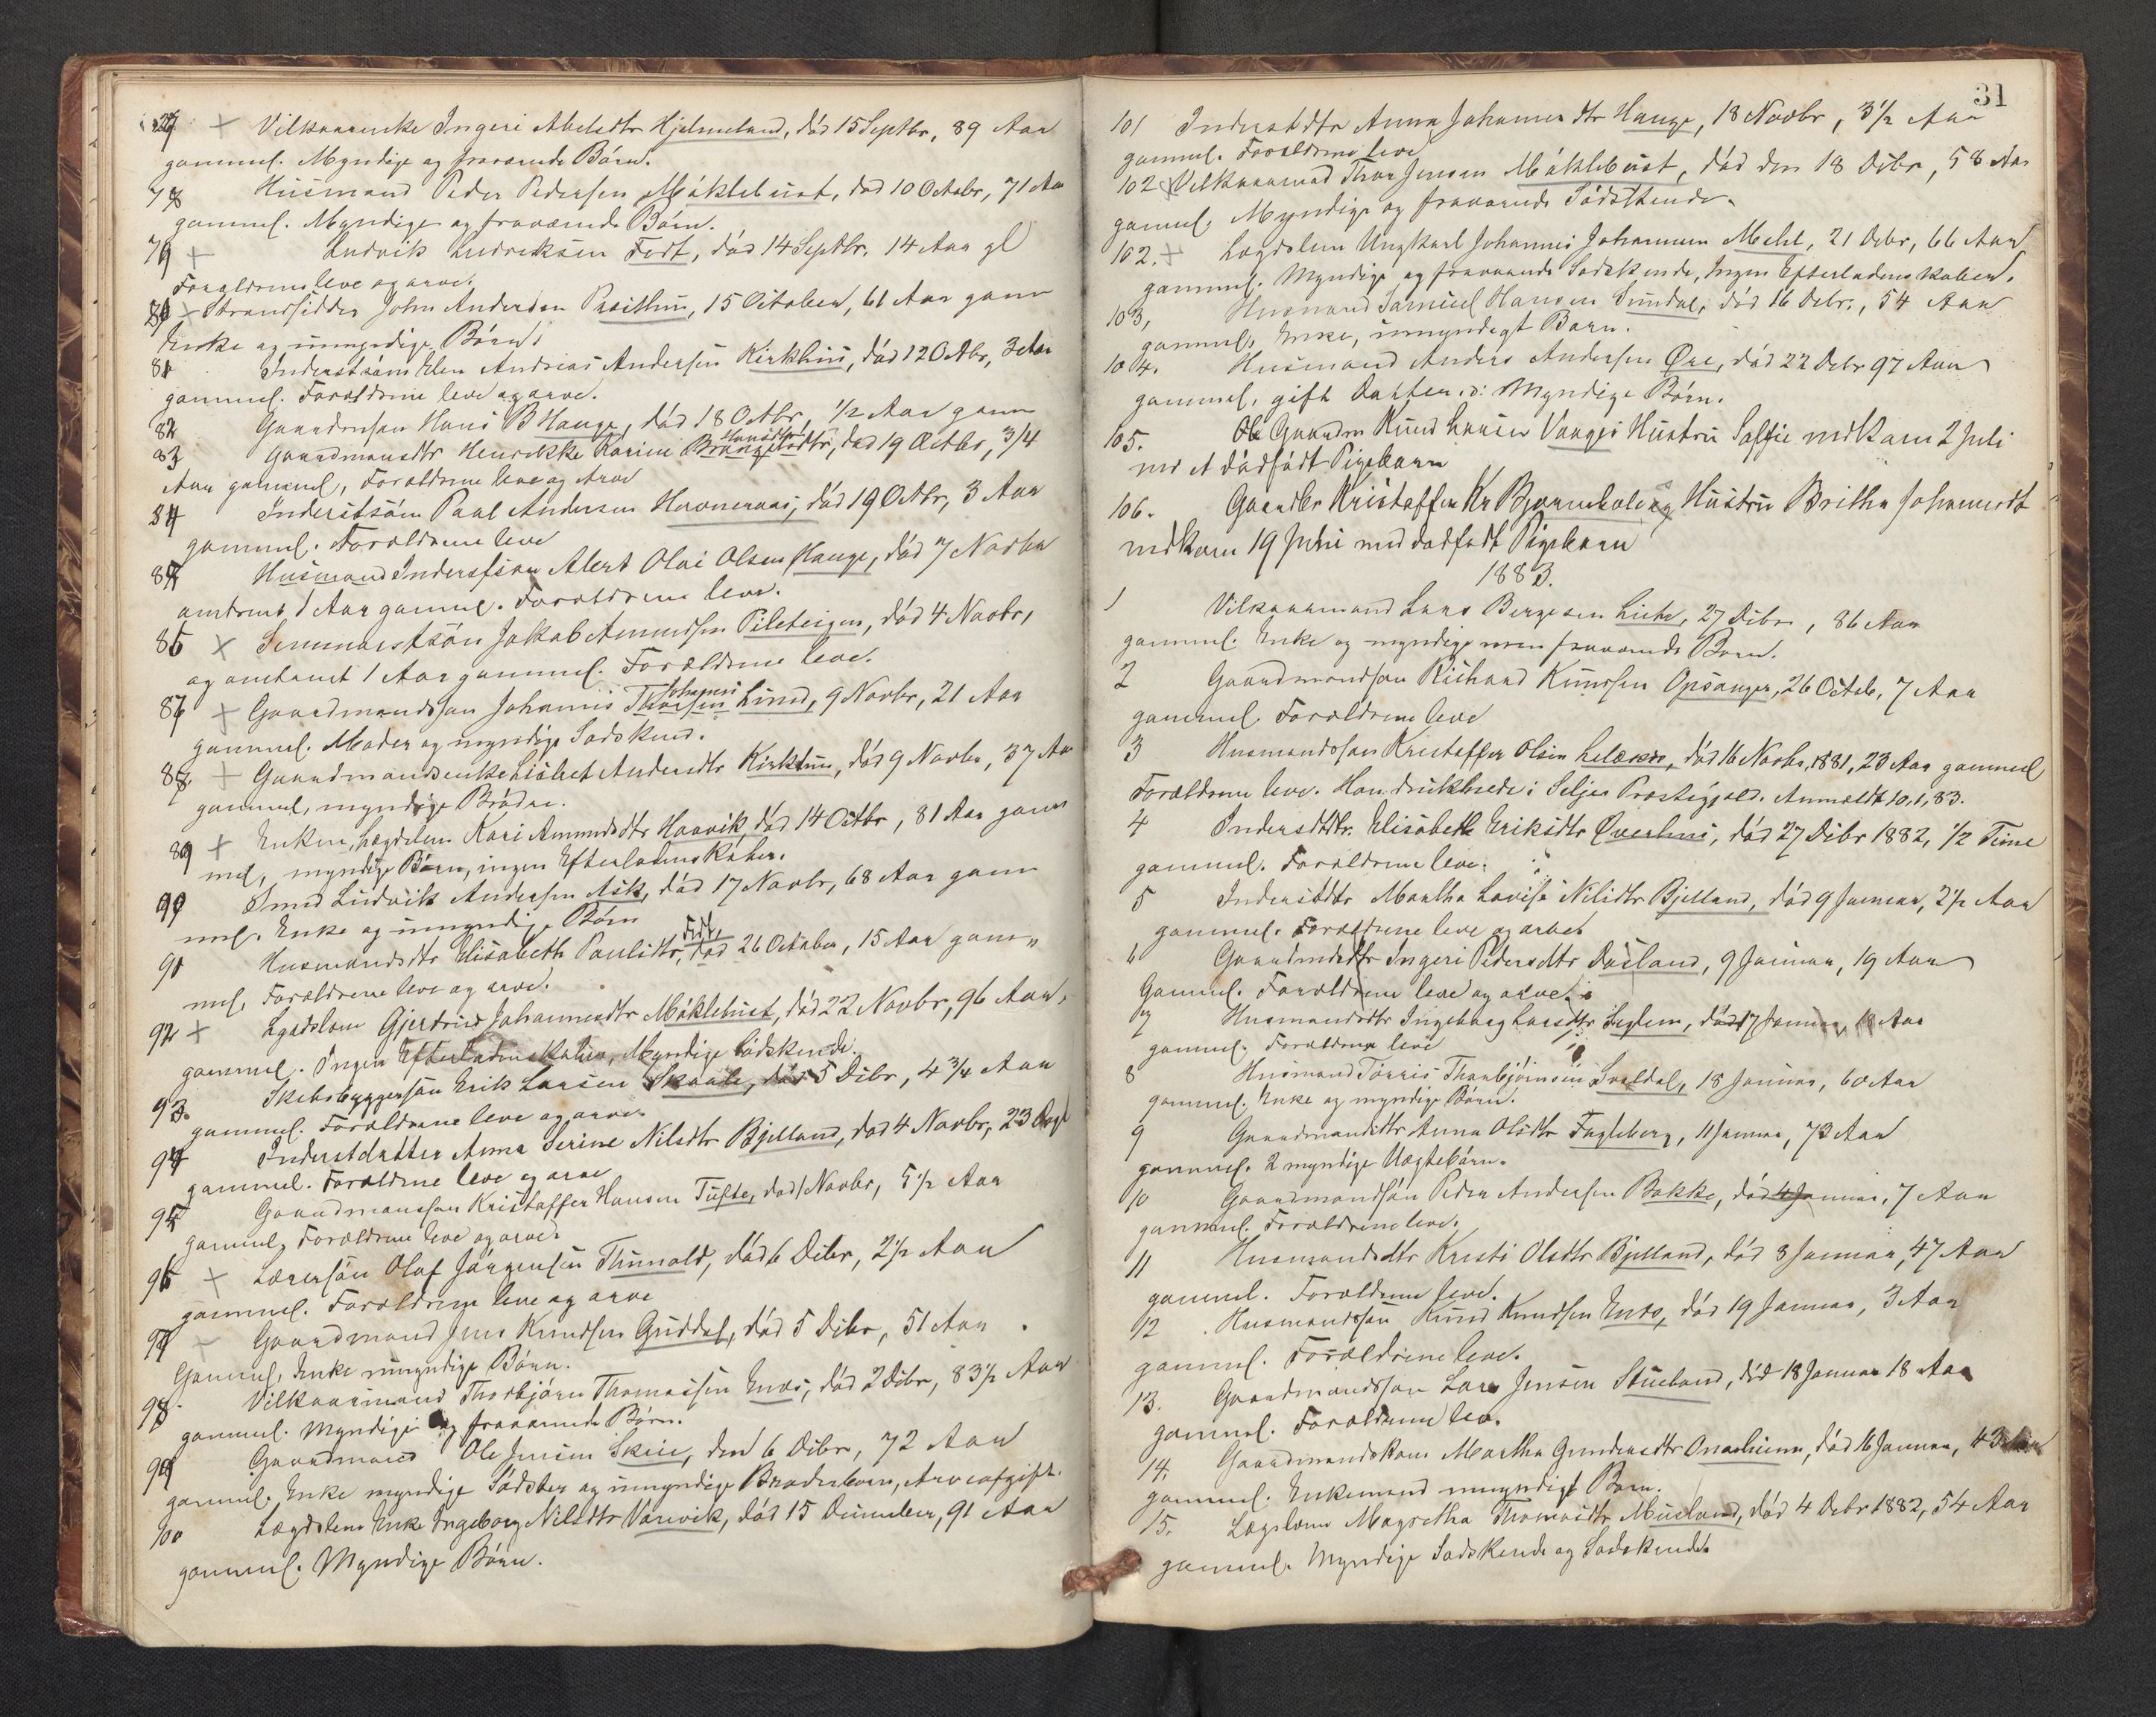 77 + Vilkaarenke Ingeri Abelsdtr Hjelmeland, död 15 Septbr, 89 Aar
gammel. Myndige og fraværende Börn.
78 Husmand Peder Pedersen Mäklebust, död 10 Octobr, 71 Aar
gammel. Myndige og fraværende Börn.
79 + Ludvik Ludviksen Fedt, död 14 Septbr. 14 Aar gl
Forældrene leve og arve.
80 + Strandsidder John Andersen Præsthun, 15 October, 61 Aar gam
Enke og umyndige Börn
81 Inderstsön Elen Andreas Andersen Kirkhus, död 12 Octbr, 3 Aar
gammel. Forældrene leve og arve.
82 Gaardmsøn Hans B Hauge, död 18 Octbr, 1/2 Aar gam
83 Gaardmandsdtr Henrikke Karine Hansdtr, död 19 Octbr, 3/4
Aar gammel, Forældrene leve og Arve
84 Inderstsön Paul Andersen Havneraas, död 19 Octbr, 3 Aar
gammel. Forældrene leve
85 Husmand Inderstsøn Alert Olai Olsen Hauge, död 7 Novbr
omtrent 1 Aar gammel. Forældrene leve.
86 + Jakob Amundsen Pileteigen, död 4 Novbr,
og omtrent 1 Aar gammel. Forældrene leve.
87 + Gaardmandsson Johannes Johannes Lund, 9 Novbr, 21 Aar
gammel. Moder og myndige Södskend.
88 + Gaardmandsenke Lisbet Andersdtr Kirkhus, död 9 Novbr, 37 Aar
gammel, myndige Brödre.
89 + Enken, Lægdslem Kari Amundsdtr Haavik död 14 Octbr, 81 Aar gam
mel, myndige Börn, ingen Efterladenskaber.
90 Smed Ludvik Andersen Ask, död 17 Novbr, 68 Aar gam
mel. Enke og umyndige Börn
91 Husmandsdtr Elisabeth Paulsdtr, Fedt, död 26 October, 15 Aar gam„
mel, Forældrene leve og arve.
92 + Lgsdslem Gjertrud Johannesdtr Mäklebust, död 22 Novbr, 96 Aar,
gammel. Ingen Efterladenskaber, Myndige Södskende.
93. Skibsbyggersön Erik Larsen Skaale, död 5 Decbr, 4 3/4 Aar
gammel. Forældrene leve og arve
94 Inderstdatter Anna Serine Nilsdtr Bjelland, död 4 Novbr, 23 Dage
gammel. Forældrene leve og arve
95 Gaardmansson Kristoffer Hansen Tufte, död 1 Novbr, 5 1/2 Aar
gammel, Forældrene leve og arve.
96 + Lærersön Olaf Jörgensen Thunold, död 6 Decbr, 2 1/2 Aar
gammel. Forældrene leve og arve
97 + Gaardmand Jens Knudsen Guddal, död 5 Decbr, 51 Aar
Gammel, Enke umyndige Börn.
98. Vilkaarmand Thorbjörn Thomassen Enæs, död 2 Decbr, 83 1/2 Aar
gammel. Myndige og fraværende Börn.
99 Gaardmand Ole Jensen Skeie, den 6 Decbr, 72 Aar
gammel. Enke myndige Södster og umyndige Broderbarn, Arveafgift.
100 Lægdslem Enke Ingeborg Nilsdtr Varvik, död 15 December, 91 Aar
gammel. Myndige Börn.
31
101 Inderstdtr Anna Johannesdtr Hauge, 18 Novbr, 3 1/2 Aar
gammel. Forældrene leve
102 + Vilkaarmand Thor Jensen Mäklebust, död den 18 Decbr, 58 Aar
gammel. Myndige og fraværende Södskende.
102. + Lægdslem Ungkarl Johannes Johannesen Mehl, 21 Debr, 66 Aar
gammel. Myndige og fraværende Södskende, Ingen Efterladenskaber.
103, Husmand Samuel Hansen Sundal, död 16 Debr., 54 Aar
gammel, Enke, umyndigt Barn.
104. Husmand Anders Andersen Øre, död 22 Debr 97 Aar
gammel, gift Datter. o: Myndige Börn.
105. Gaardm Knud Larsen Vanges Hustru Soffie nedkom 2 Juli
med et dödfödt Pigebarn
106. Gaardbr Kristoffer Kr Bjørneboles Hustru Britha Johannesdt
nedkom 19 Juni med dødfødt Pigebarn
1883.
1 Vilkaarmand Lars Bergesen Lithe, 27 Decbr, 86 Aar
gammel. Enke og myndige men fraværende Børn.
2 Gaardmandsson Richard Knudsen Opsanger, 26 Octob, 7 Aar
gammel Forældrene leve
3 Husmandsson Kristoffer Olsen, död 16 Novbr, 1881, 23 Aar gammel
Forældrene leve. Han druknede i Seljes Præstegjeld. Anmeldt 10,1,83.
4 Inderstdtr. Elisabeth Eriksdtr Øverhus, död 27 Debr 1882, 1/2 Time
gammel. Forældrene leve.
5 Inderstdtr Martha Lovise Nilsdtr Bjelland, död 9 Januar, 2 1/2 Aar
gammel. Forældrene leve og arver
6 Gaardmdtr Ingeri Pedersdtr Døsland, 9 Januar, 19 Aar
Gammel. Forældrene leve og arve.
7 Husmandsdtr Ingeborg Larsdtr Seglem, död 17 Januar, Aar
gammel. Forældrene leve
8 Husmand Torris Thorbjörnsen Svoldal, 15 Januar, 60 Aar
gammel. Enke og myndige Börn.
9 Gaardmandsdtr Anna Olsdtr Fugleberg, 11 Januar, 73 Aar
gammel. 2 myndige Uægtebörn.
10 Gaardmandsön Peder Andersen Bakke, död 4 Januar, 7 Aar
gammel. Forældrene leve.
11 Husmandsdtr Kristi Olsdtr Bjelland, död 8 Januar, 47 Aar
gammel. Forældrene leve.
12 Husmandssön Knud Knudsen Enæs, död 19 Januar, 3 Aar
gammel. Forældrene leve.
13. Gaardmandsson Lars Jensen Stueland, död 18 Januar 18 Aar
gammel. Forældrene leve.
14. Gaardmandskone Martha Gundersdtr Onarheim, död 16 Januar, 43 Aar
gammel. Enkemand umyndigt Barn.
15. Lægslem Magretha Thomasdtr Musland, död 4 Debr 1882, 54 Aar
gammel. Myndige Södskende og Södskende.